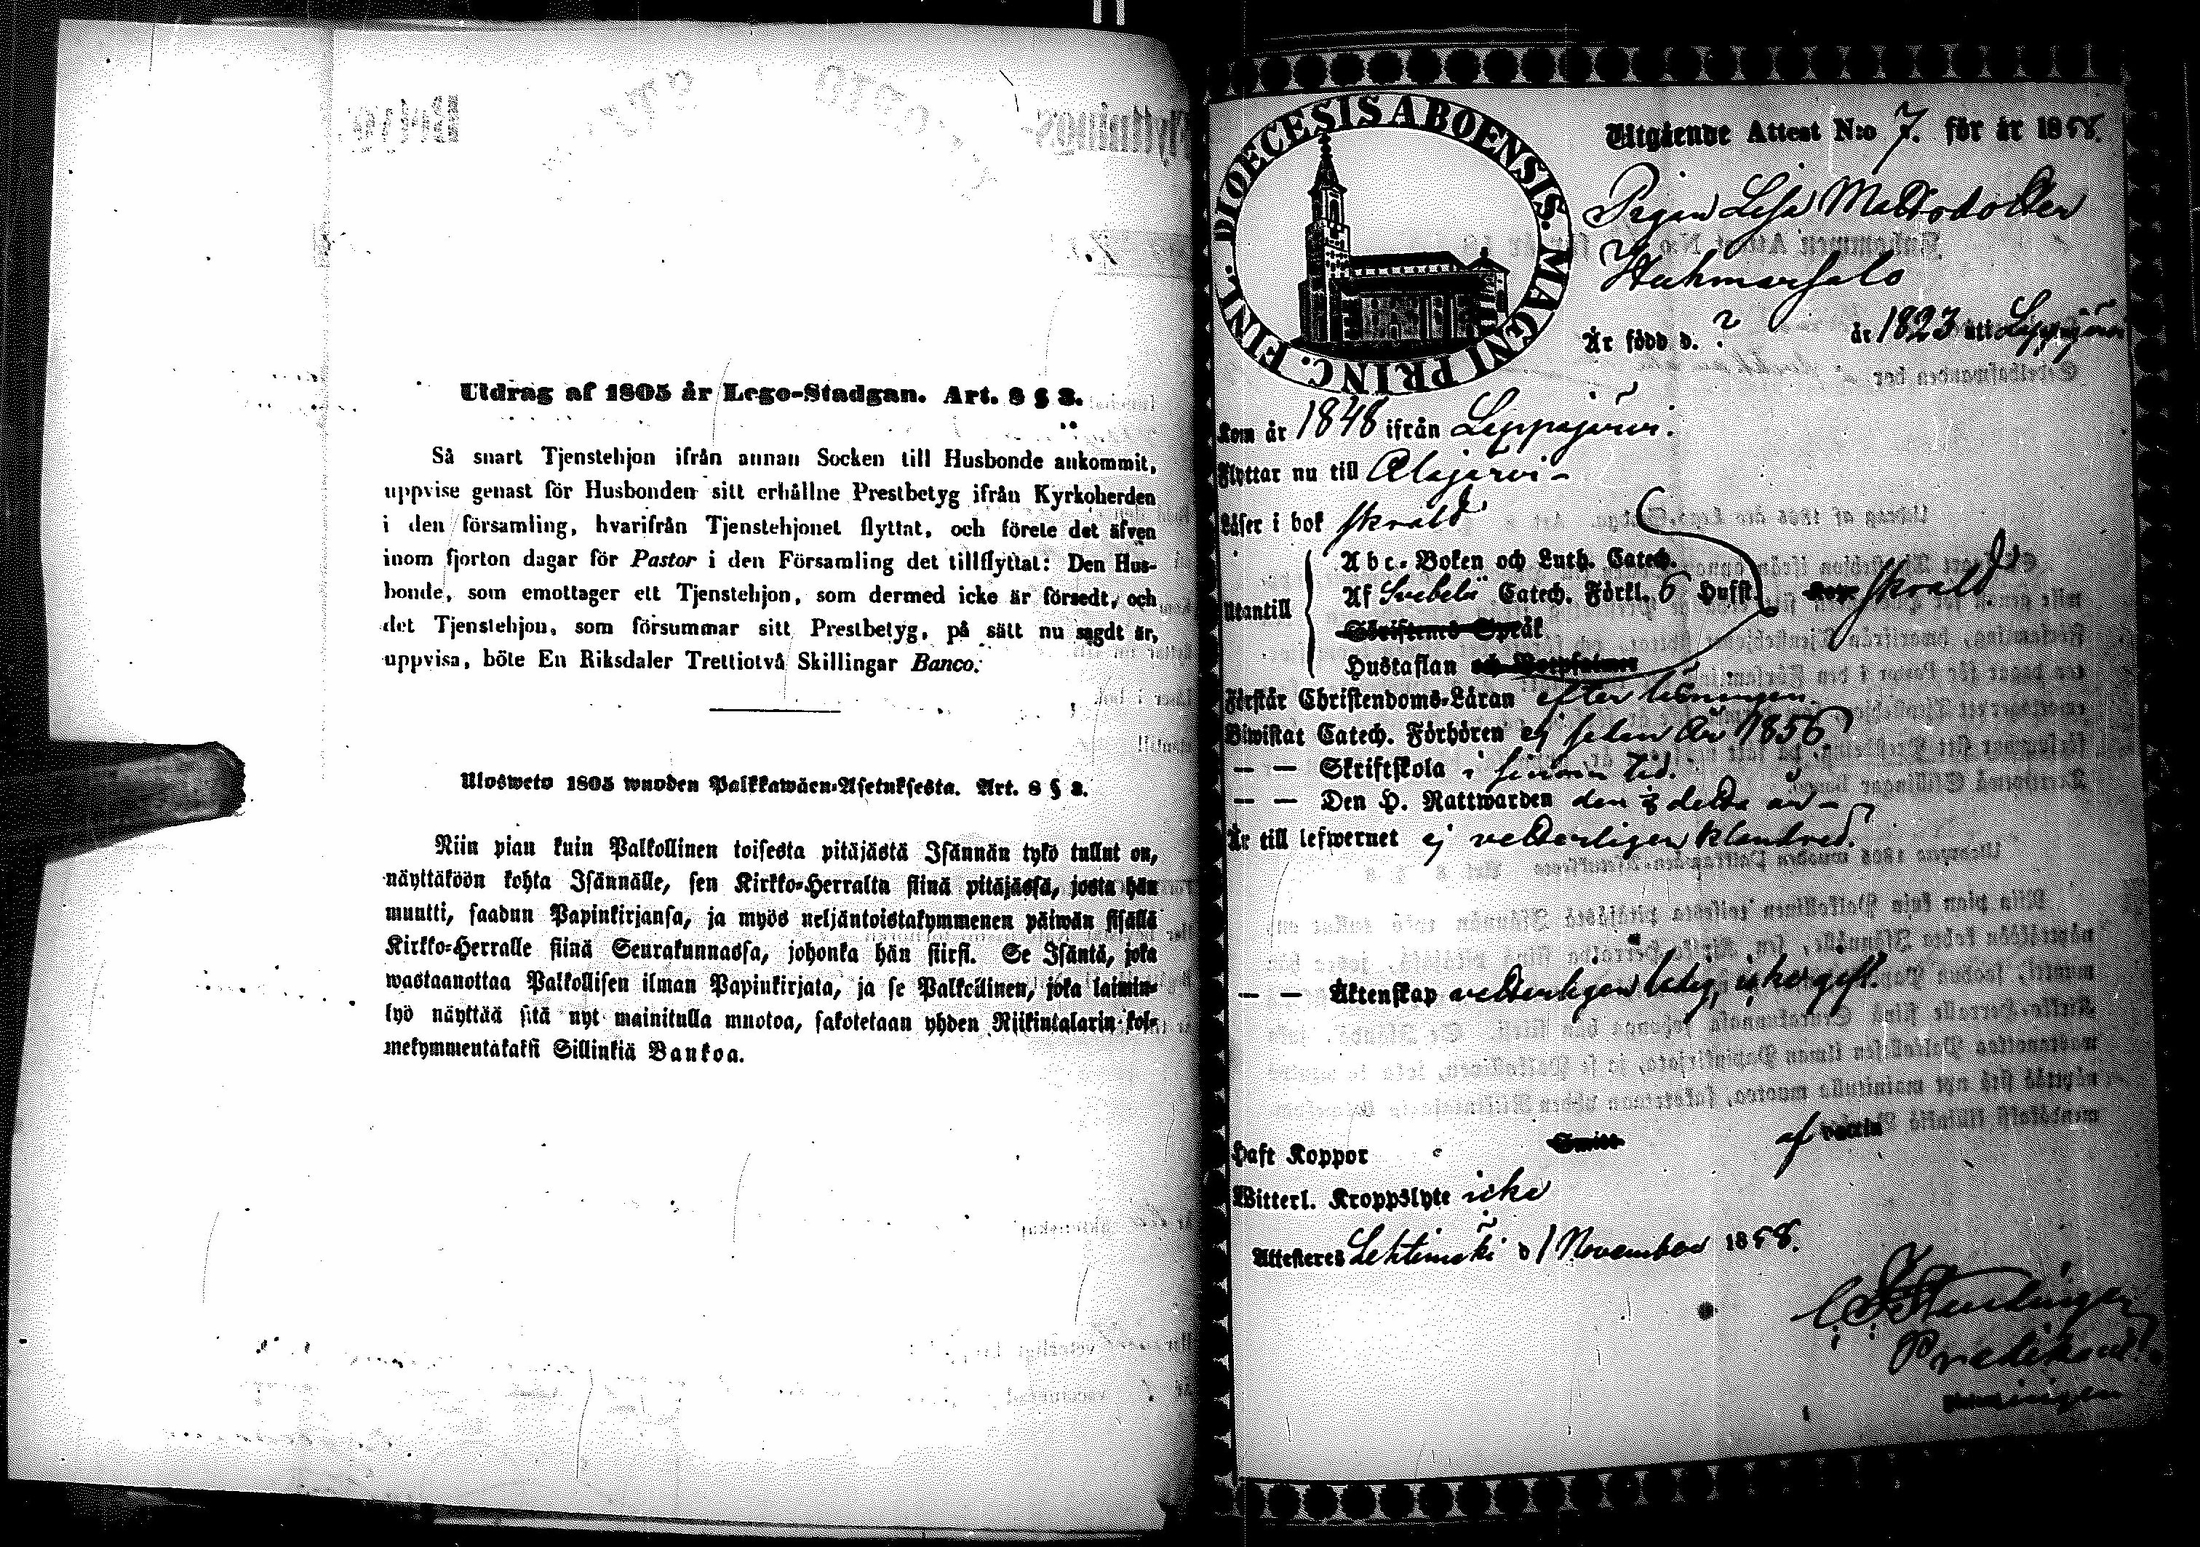 Utdrag af 1805 år Lego-Stadgan. Art. 8 § 3.
Så snart Tjenstehjon ifrån annan Socken till Husbonde ankommit,
uppvise genast för Husbonden sitt erhållne Prestbetyg ifrån Kyrkoherden
i den församling, hvarifrån Tjenstehjonet flyttat, och förete det äfven
inom fjorton dagar för Pastor i den Församling det tillflyttat: Den Hus-
bonde, som emottager ett Tjenstehjon, som dermed icke är försedt, och
det Tjenstehjon, som försummar sitt Prestbetyg, på sätt nu sagdt är,
uppvisa, böte En Riksdaler Trettiotvå Skillingar Banco.
Ulosweto 1805 wuoden Palkkawäen-Asetuksesta. Art. 8 § 3.
Niin pian kuin Palkollinen toisesta pitäjästä Isännän tykö tullut on,
näyttäköön kohta Isännälle, sen Kirkko-Herralta siinä pitäjässä, josta hän
muutti, saadun Papinkirjansa, ja myös neljäntoistakymmenen päiwän sisällä
Kirkko-Herralle siinä Seurakunnassa, johonka hän siirsi. Se Isäntä, joka
wastaanottaa Palkollisen ilman Papinkirjata, ja se Palkollinen, joka laimin-
lyö näyttää sitä nyt mainitulla muotoa, sakotetaan yhden Riikintalarin kol-
mekymmentäkaksi Sillinkiä Bankoa.
DIOECESIS ABOENSIS. MAGNI PRINC. FINL.
Utgående Attest N:o 7. för år 1858.
Pigan Lisa Mattsdotter
Huhmarsalo
Är född d. ? år 1823 uti Lappajärvi
Kom år 1848 ifrån Lappajärvi.
Flyttar nu till Alajärvi
Läser i bok svald
Utantill
Abc-Boken och Luth. Catech.
Af Svebelii Catech. Förkl. 6 Hufst.
Skriftens Språk
Hustaflan och Botpsalmer
Förstår Christendoms-Läran efter läsningen
Biwistat Catech. Förhören ej sedan år 1856
— — Skriftskola i sinom tid.
— — Den H. Nattwarden den detta år
Är till lefwernet ej vetterligen klandrad.
— — Äktenskap vetterligen ledig,
Haft Koppor af
Witterl. Kroppslyte icke
Attesteres Lehtimäki d 1 November 1858.